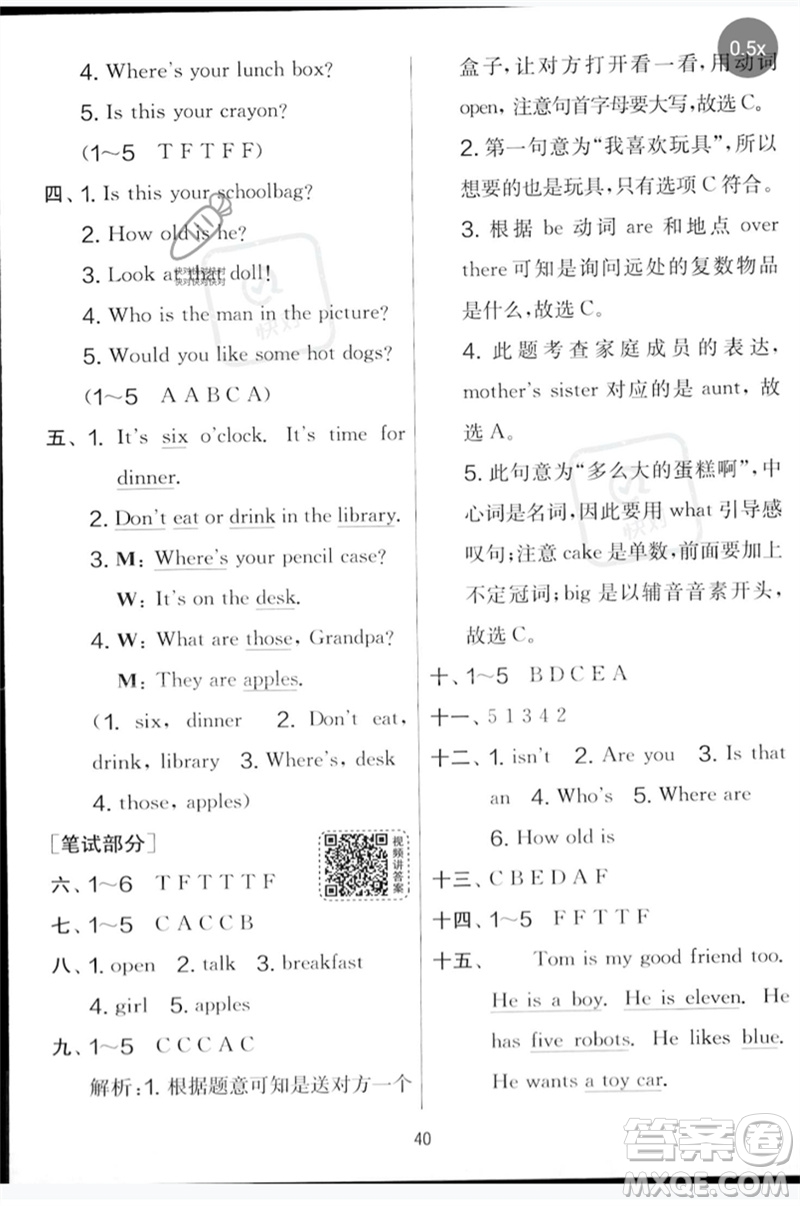 4. Where's your lunch box?
5. Is this your crayon?
(1～5 T F T F F)
四、1. Is this your schoolbag?
2. How old is he?
3. Look at that doll!
快对快对快对
快对快对快对
4. Who is the man in the picture?
5. Would you like some hot dogs?
(1～5 A A B C A)
五、1. It's six o'clock. It's time for
dinner.
2. Don't eat or drink in the library.
3. M: Where's your pencil case?
W: It's on the desk.
4. W: What are those, Grandpa?
M: They are apples.
(1. six, dinner 2. Don't eat,
drink, library 3. Where's, desk
4. those, apples)
[笔试部分]
视频讲答案
六、1～6 T F T T T F
七、1～5 C A C C B
八、1. open 2. talk 3. breakfast
4. girl 5. apples
九、1～5 C C C A C
解析:1. 根据题意可知是送对方一个
0.5x
盒子，让对方打开看一看，用动词
open，注意句首字母要大写，故选 C。
2. 第一句意为“我喜欢玩具”，所以
想要的也是玩具，只有选项 C 符合。
3. 根据 be 动词 are 和地点 over
there 可知是询问远处的复数物品
是什么，故选 C。
4. 此题考查家庭成员的表达，
mother's sister 对应的是 aunt，故
选 A。
5. 此句意为“多么大的蛋糕啊”，中
心词是名词，因此要用 what 引导感
叹句；注意 cake 是单数，前面要加上
不定冠词；big 是以辅音音素开头，
故选 C。
十、1～5 B D C E A
十一、5 1 3 4 2
十二、1. isn't 2. Are you 3. Is that
an 4. Who's 5. Where are
6. How old is
十三、C B E D A F
十四、1～5 F F T T F
十五、 Tom is my good friend too.
He is a boy. He is eleven. He
has five robots. He likes blue.
He wants a toy car.
快对
快对
40
答案卷
MXQE.COM